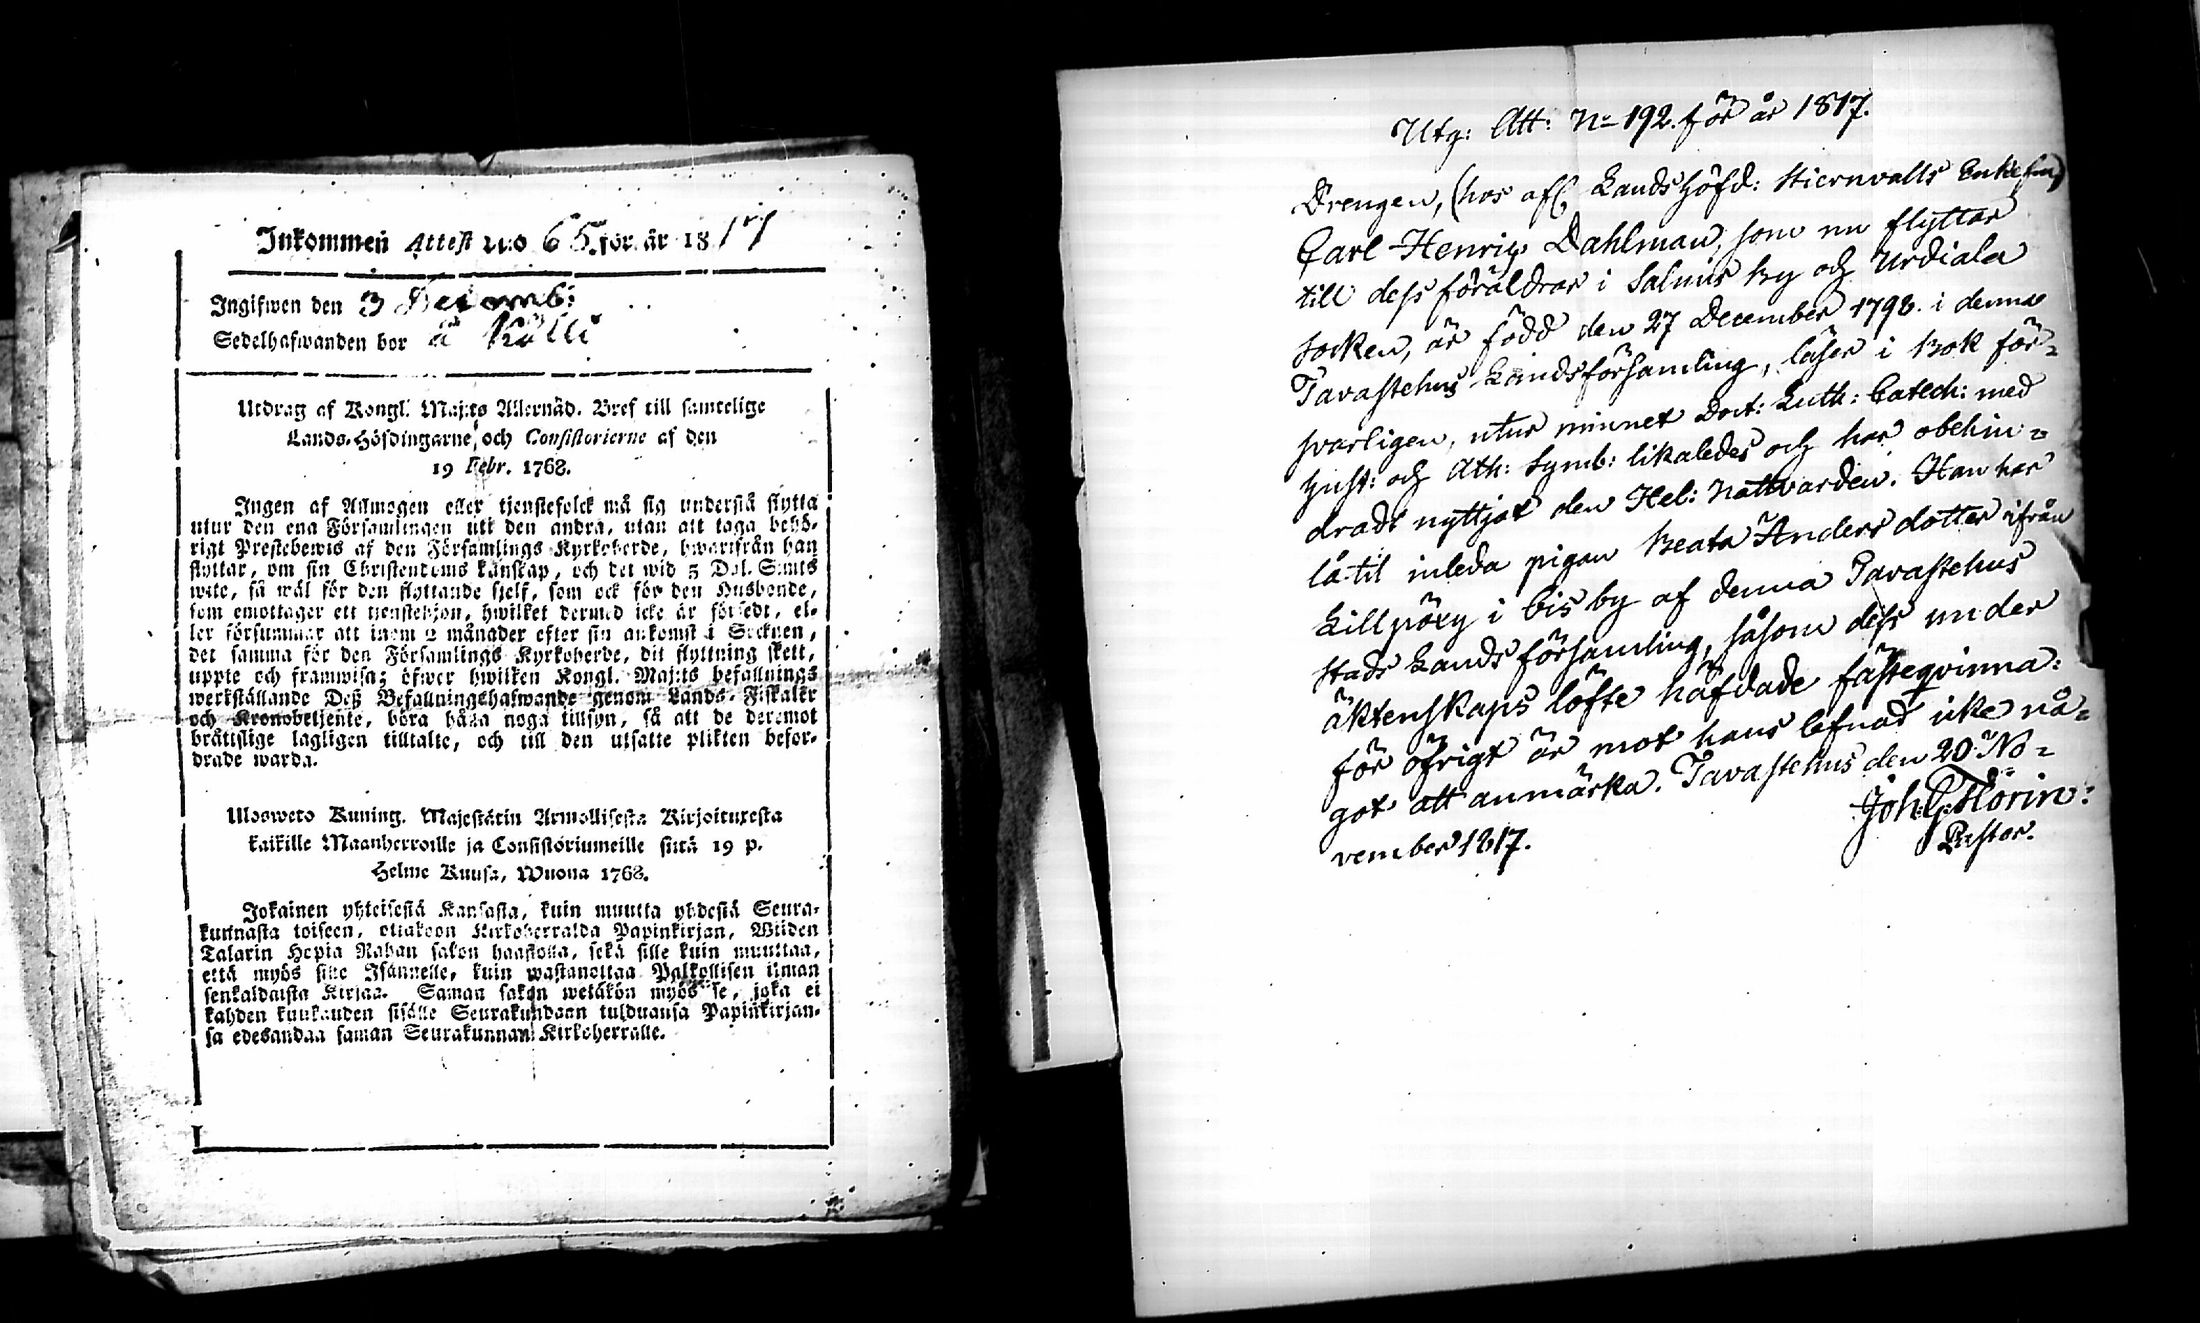 Inkommen Attest N:o 65. för år 1817
Ingifwen den 3 Decemb:
Sedelhafwanden bor å Kölli
Utdrag af Kongl. Maj:ts Allernåd. Bref till samtelige
Lands-Höfdingarne och Consistorierne af den
19 Febr. 1768.
Ingen af Allmogen eller tjenstefolck må sig understå flytta
utur den ena Församlingen uti den andra, utan att taga behö-
rigt Prestebewis af den Församlings Kyrkoherde, hwarifrån han
flyttar, om sin Christendoms kunskap, och det wid 5 Dal. S:mts
wite, så wäl för den flyttande sjelf, som ock för den Husbonde,
som emottager ett tjenstehjon, hwilket dermed icke är försedt, el-
ler försummar att inom 2 månader efter sin ankomst i Socknen,
det samma för den Församlings Kyrkoherde, dit flyttning skett,
uppte och framwisa; öfwer hwilken Kongl. Maj:ts befallnings
werkställande Deß Befallningshafwande genom Lands-Fiskaler
och Kronobetjente, böra hålla noga tillsyn, så att de deremot
bråttslige lagligen tilltalte, och till den utsatte plikten befor-
drade warda.
Ulosweto Kuning. Majestätin Armollisesta Kirjoituxesta
kaikille Maanherroille ja Consistoriumeille siitä 19 p.
Helme Kuusa, Wuona 1768.
Jokainen yhteisestä Kansasta, kuin muutta yhdestä Seura-
kunnasta toiseen, ottakoon Kirkoherralda Papinkirjan, Wiiden
Talarin Hopia Rahan sakon haastolla, sekä sille kuin muuttaa,
että myös sille Isännelle, kuin wastanottaa Palkollisen ilman
senkaldaista Kirjaa. Saman sakon wetäkön myös se, joka ei
kahden kuukauden sisälle Seurakundaan tulduansa Papinkirjan-
sa edesandaa saman Seurakunnan Kirkoherralle.
Utg: Att: No 192. för år 1817.
Drengen, (hos afl. Landshöfd: Stiernvalls Enkefru)
Carl Henric Dahlman, som nu flyttar
till dess föräldrar i Salmis by och Urdiala
socken, är född den 27 December 1798. i denna
Tavastehus Landsförsamling, läser i Bok för=
svarligen, utur minnet Doct: Luth: Catech: med
Hust: och Ath: Symb: likaledes och har obehin=
dradt nyttjat den Hel: Nattvarden. Han har
låtit inleda pigan Beata Anders dotter ifrån
Lillpöxy i Bis by af denna Tavastehus
Stads Landsförsamling, såsom dess under
äktenskaps löfte häfdade fästeqvinna:
för öfrigt är mot hans lefnad icke nå=
got att anmärka. Tavastehus den 20 No=
vember 1817.
Joh. G: Florin:
Pastor.